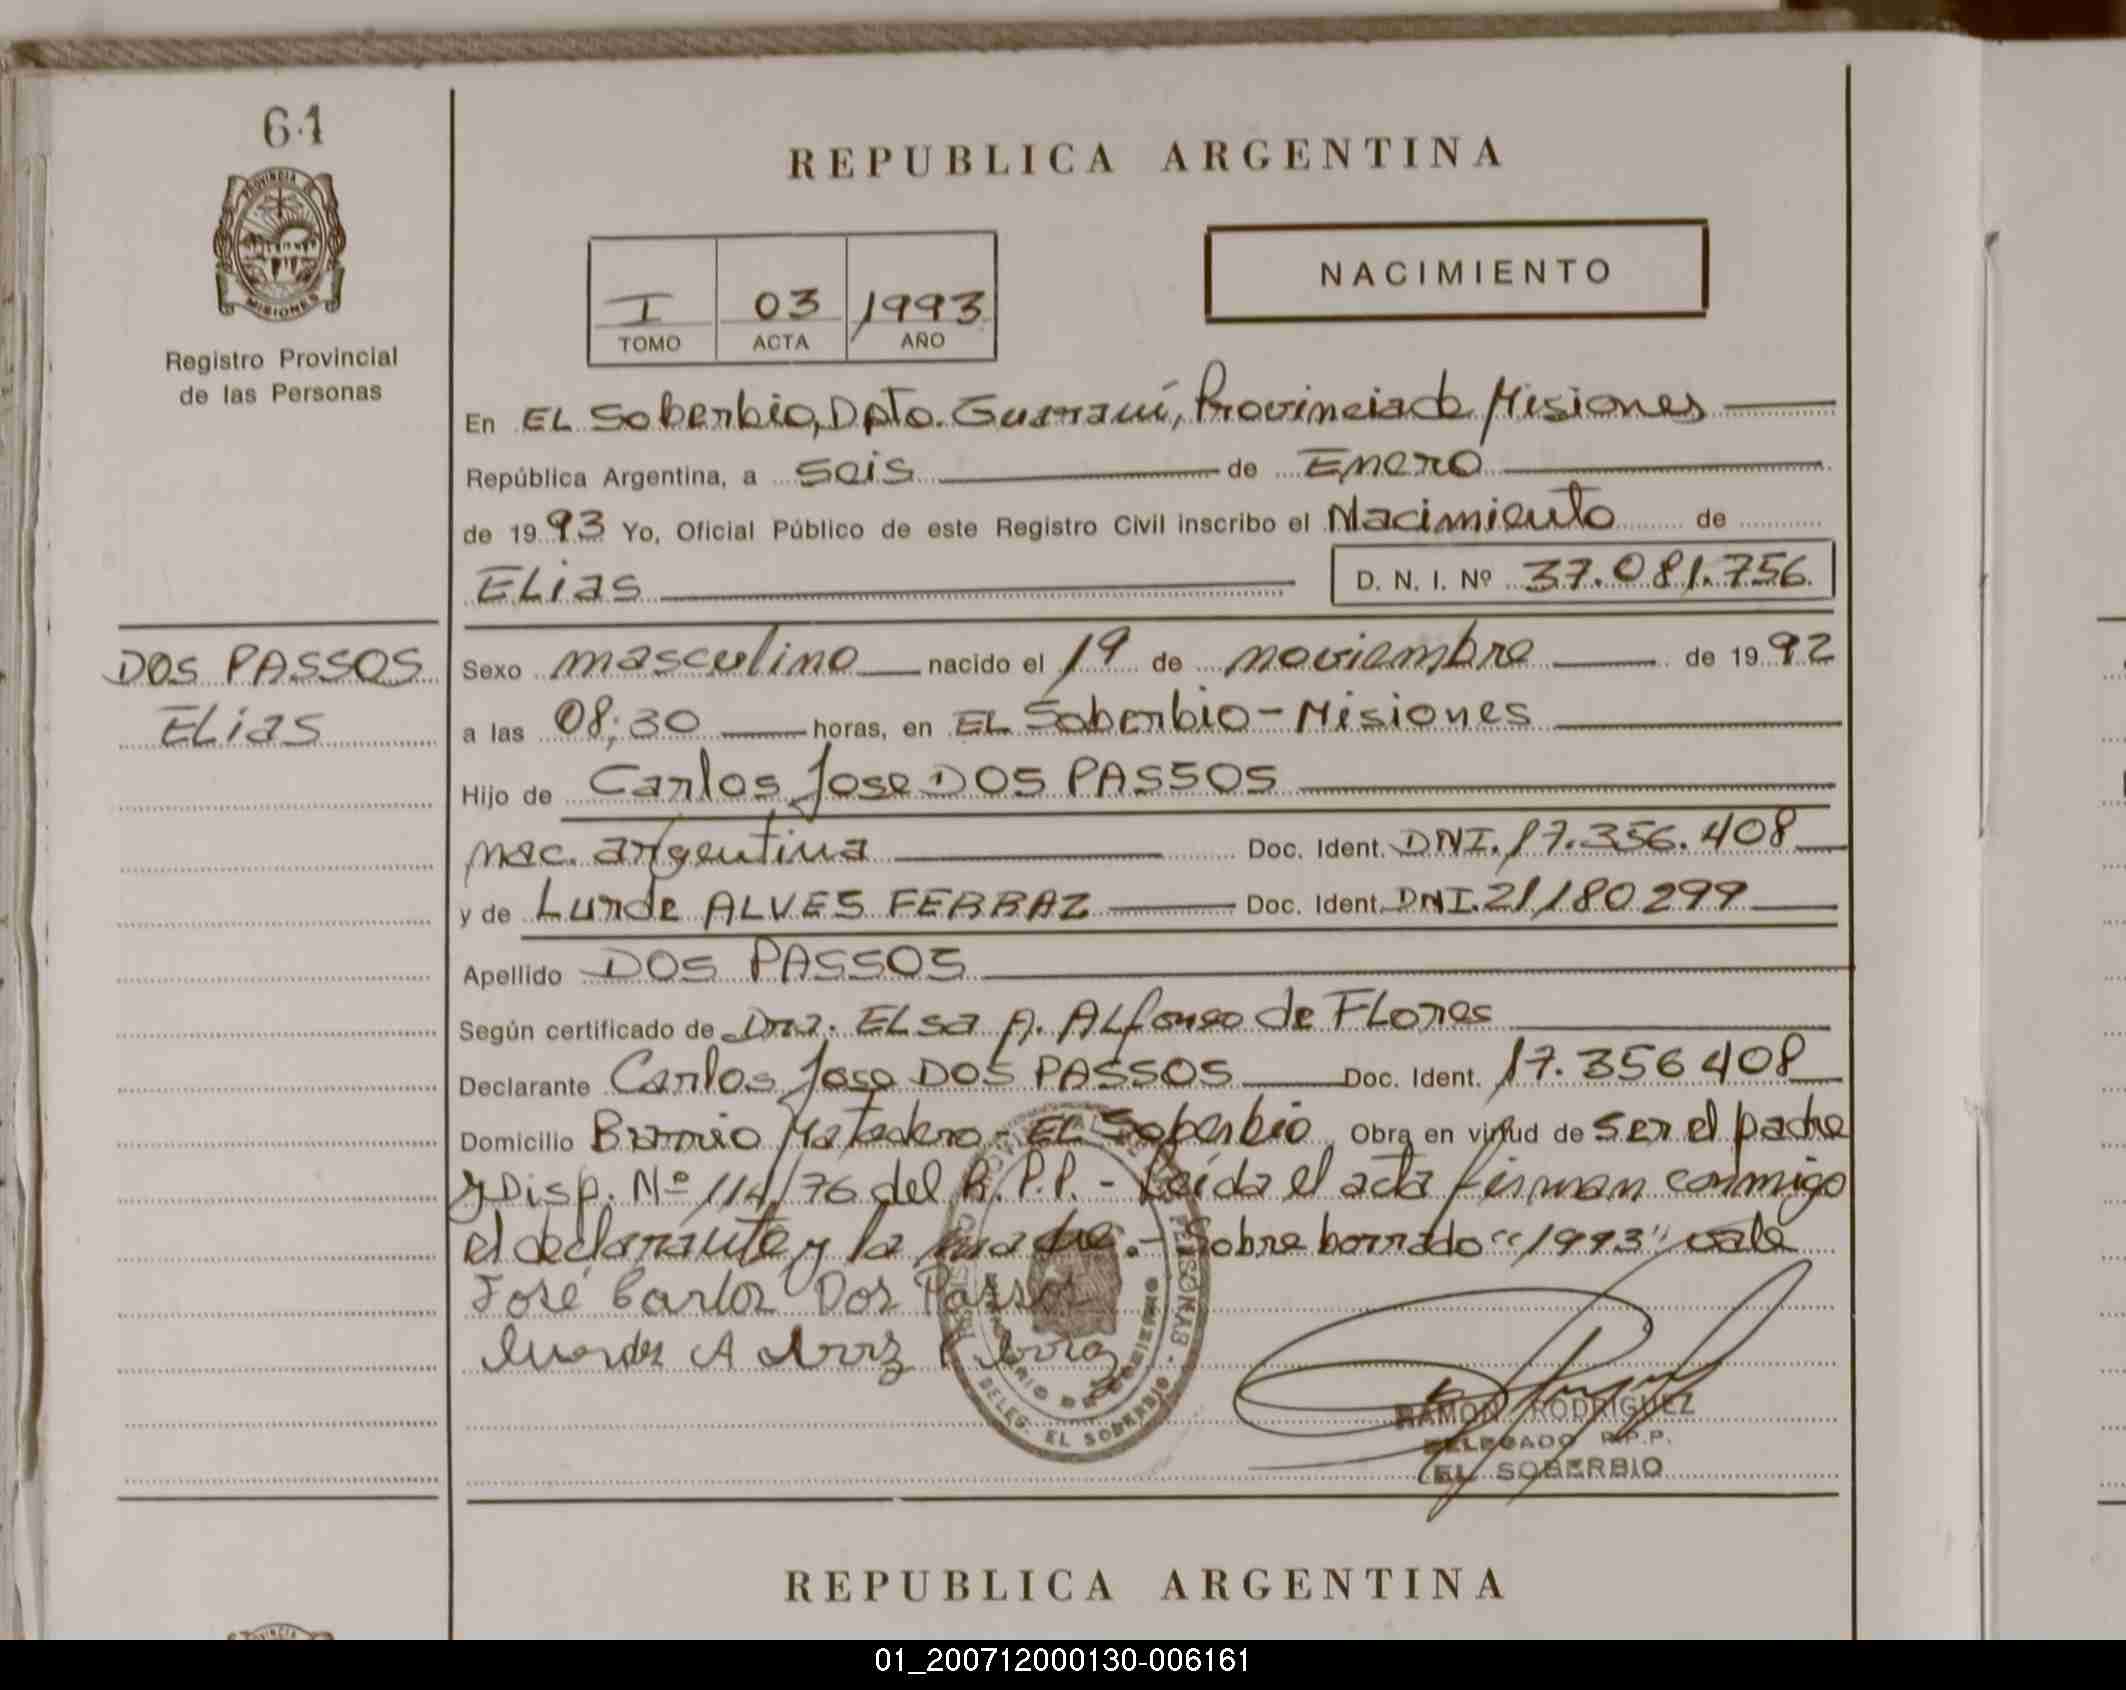 61
PROVINCIA DE
MISIONES
Registro Provincial
de las Personas
DOS PASSOS
ELias
REPUBLICA ARGENTINA
I 03 1993
TOMO ACTA AÑO
NACIMIENTO
En EL Soberbio, Dpto. Guaraní, Provincia de Misiones
República Argentina, a seis de Enero
de 1993 Yo, Oficial Público de este Registro Civil inscribo el Nacimiento de
ELias D. N. I. Nº 37.081.756
Sexo masculino nacido el 19 de noviembre de 1992
a las 08:30 horas, en EL Soberbio - Misiones
Hijo de Carlos Jose DOS PASSOS
nac. argentina Doc. Ident. DNI. 17.356.408
y de Lurde ALVES FERRAZ Doc. Ident. DNI. 21180299
Apellido DOS PASSOS
Según certificado de Dra. ELsa A. ALfonso de FLores
Declarante Carlos Jose DOS PASSOS Doc. Ident. 17.356408
Domicilio Barrio Matadero - EL Soberbio Obra en virtud de ser el padre
y Disp. Nº 114/76 del R.P.P. - Leída el acta firman conmigo
el declarante y la madre. - Sobre borrado "1993" vale
José Carlos Dos Passos
DELEG. EL SOBERBIO
RAMON RODRIGUEZ
DELEGADO R.P.P.
EL SOBERBIO
REPUBLICA ARGENTINA
01_200712000130-006161